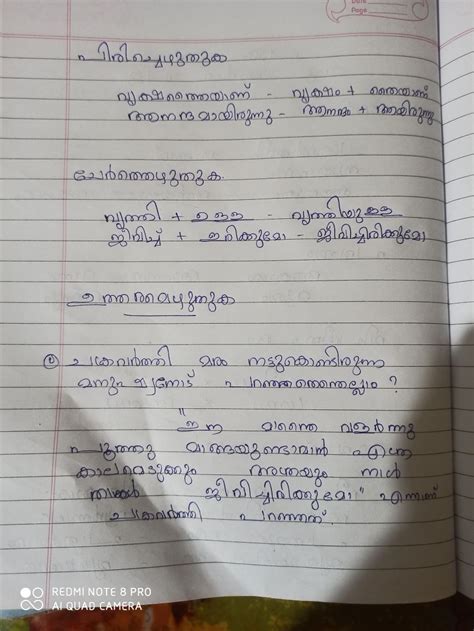 Date
Page
പിരിച്ചെഴുതുക
വൃക്ഷത്തൈയാണ് - വൃക്ഷം + തൈയാണ്
ആനന്ദമായിരുന്നു - ആനന്ദം + ആയിരുന്നു
ചേർത്തെഴുതുക
വൃത്തി + ഉള്ള - വൃത്തിയുള്ള
ജീവിച്ച് + ഇരിക്കുമോ - ജീവിച്ചിരിക്കുമോ
ഉത്തരമെഴുതുക
ചക്രവർത്തി മരം നട്ടുകൊണ്ടിരുന്ന
മനുഷ്യനോട് പറഞ്ഞതെന്തെല്ലാം ?
"ഈ മാന്തൈ വളർന്നു
പൂത്തു മാങ്ങയുണ്ടാവാൻ എത്ര
കാലമെടുക്കും അത്രയും നാൾ
താങ്കൾ ജീവിച്ചിരിക്കുമോ" എന്നാണ്
ചക്രവർത്തി പറഞ്ഞത്.
REDMI NOTE 8 PRO
AI QUAD CAMERA